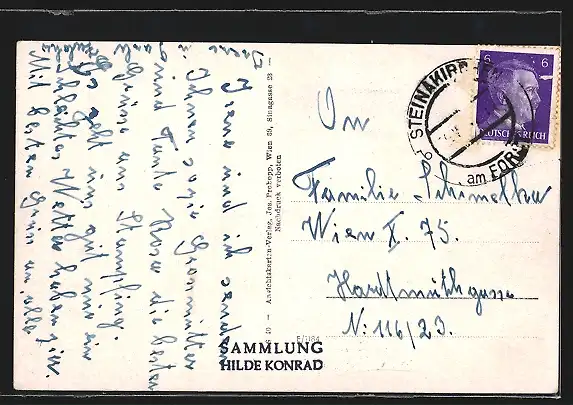 Irene und ich senden
Ihnen sowie Grossmutter
und Tante Rosa die besten
Grüsse aus Stampfing.
Es geht uns gut nur ein
schlechtes Wetter haben wir.
Mit besten Grüßen an alle
Irene u.
Ansichtskarten-Verlag, Jos. Prokopp, Wien 89, Steingasse 23 —
Nachdruck verboten
6
6
DEUTSCHES REICH
STEINAKIRCHEN
am FORST
An
Familie Schimetka
Wien X. 75.
Hardtmuthgasse
N: 116/23.
SAMMLUNG
HILDE KONRAD